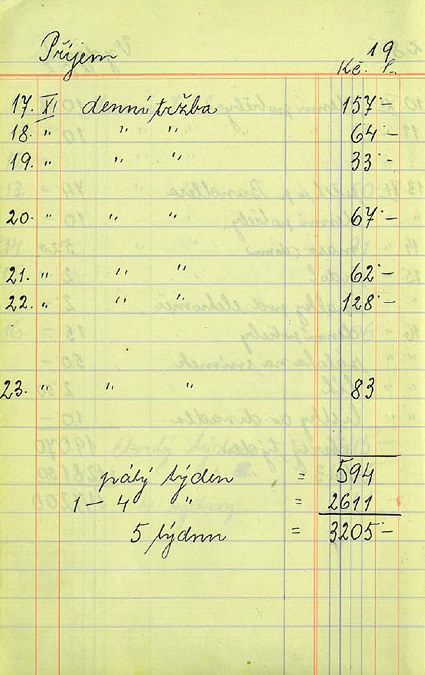 Příjem 19
Kč. h.
17. XI denní tržba 157·–
18. " " " 64·–
19. " " " 33·–
20. " " " 67·–
21. " " " 62·–
22. " " " 128·–
23. " " " 83
594
pátý týden =
1 – 4 " = 2611
5 týdnu = 3205·–